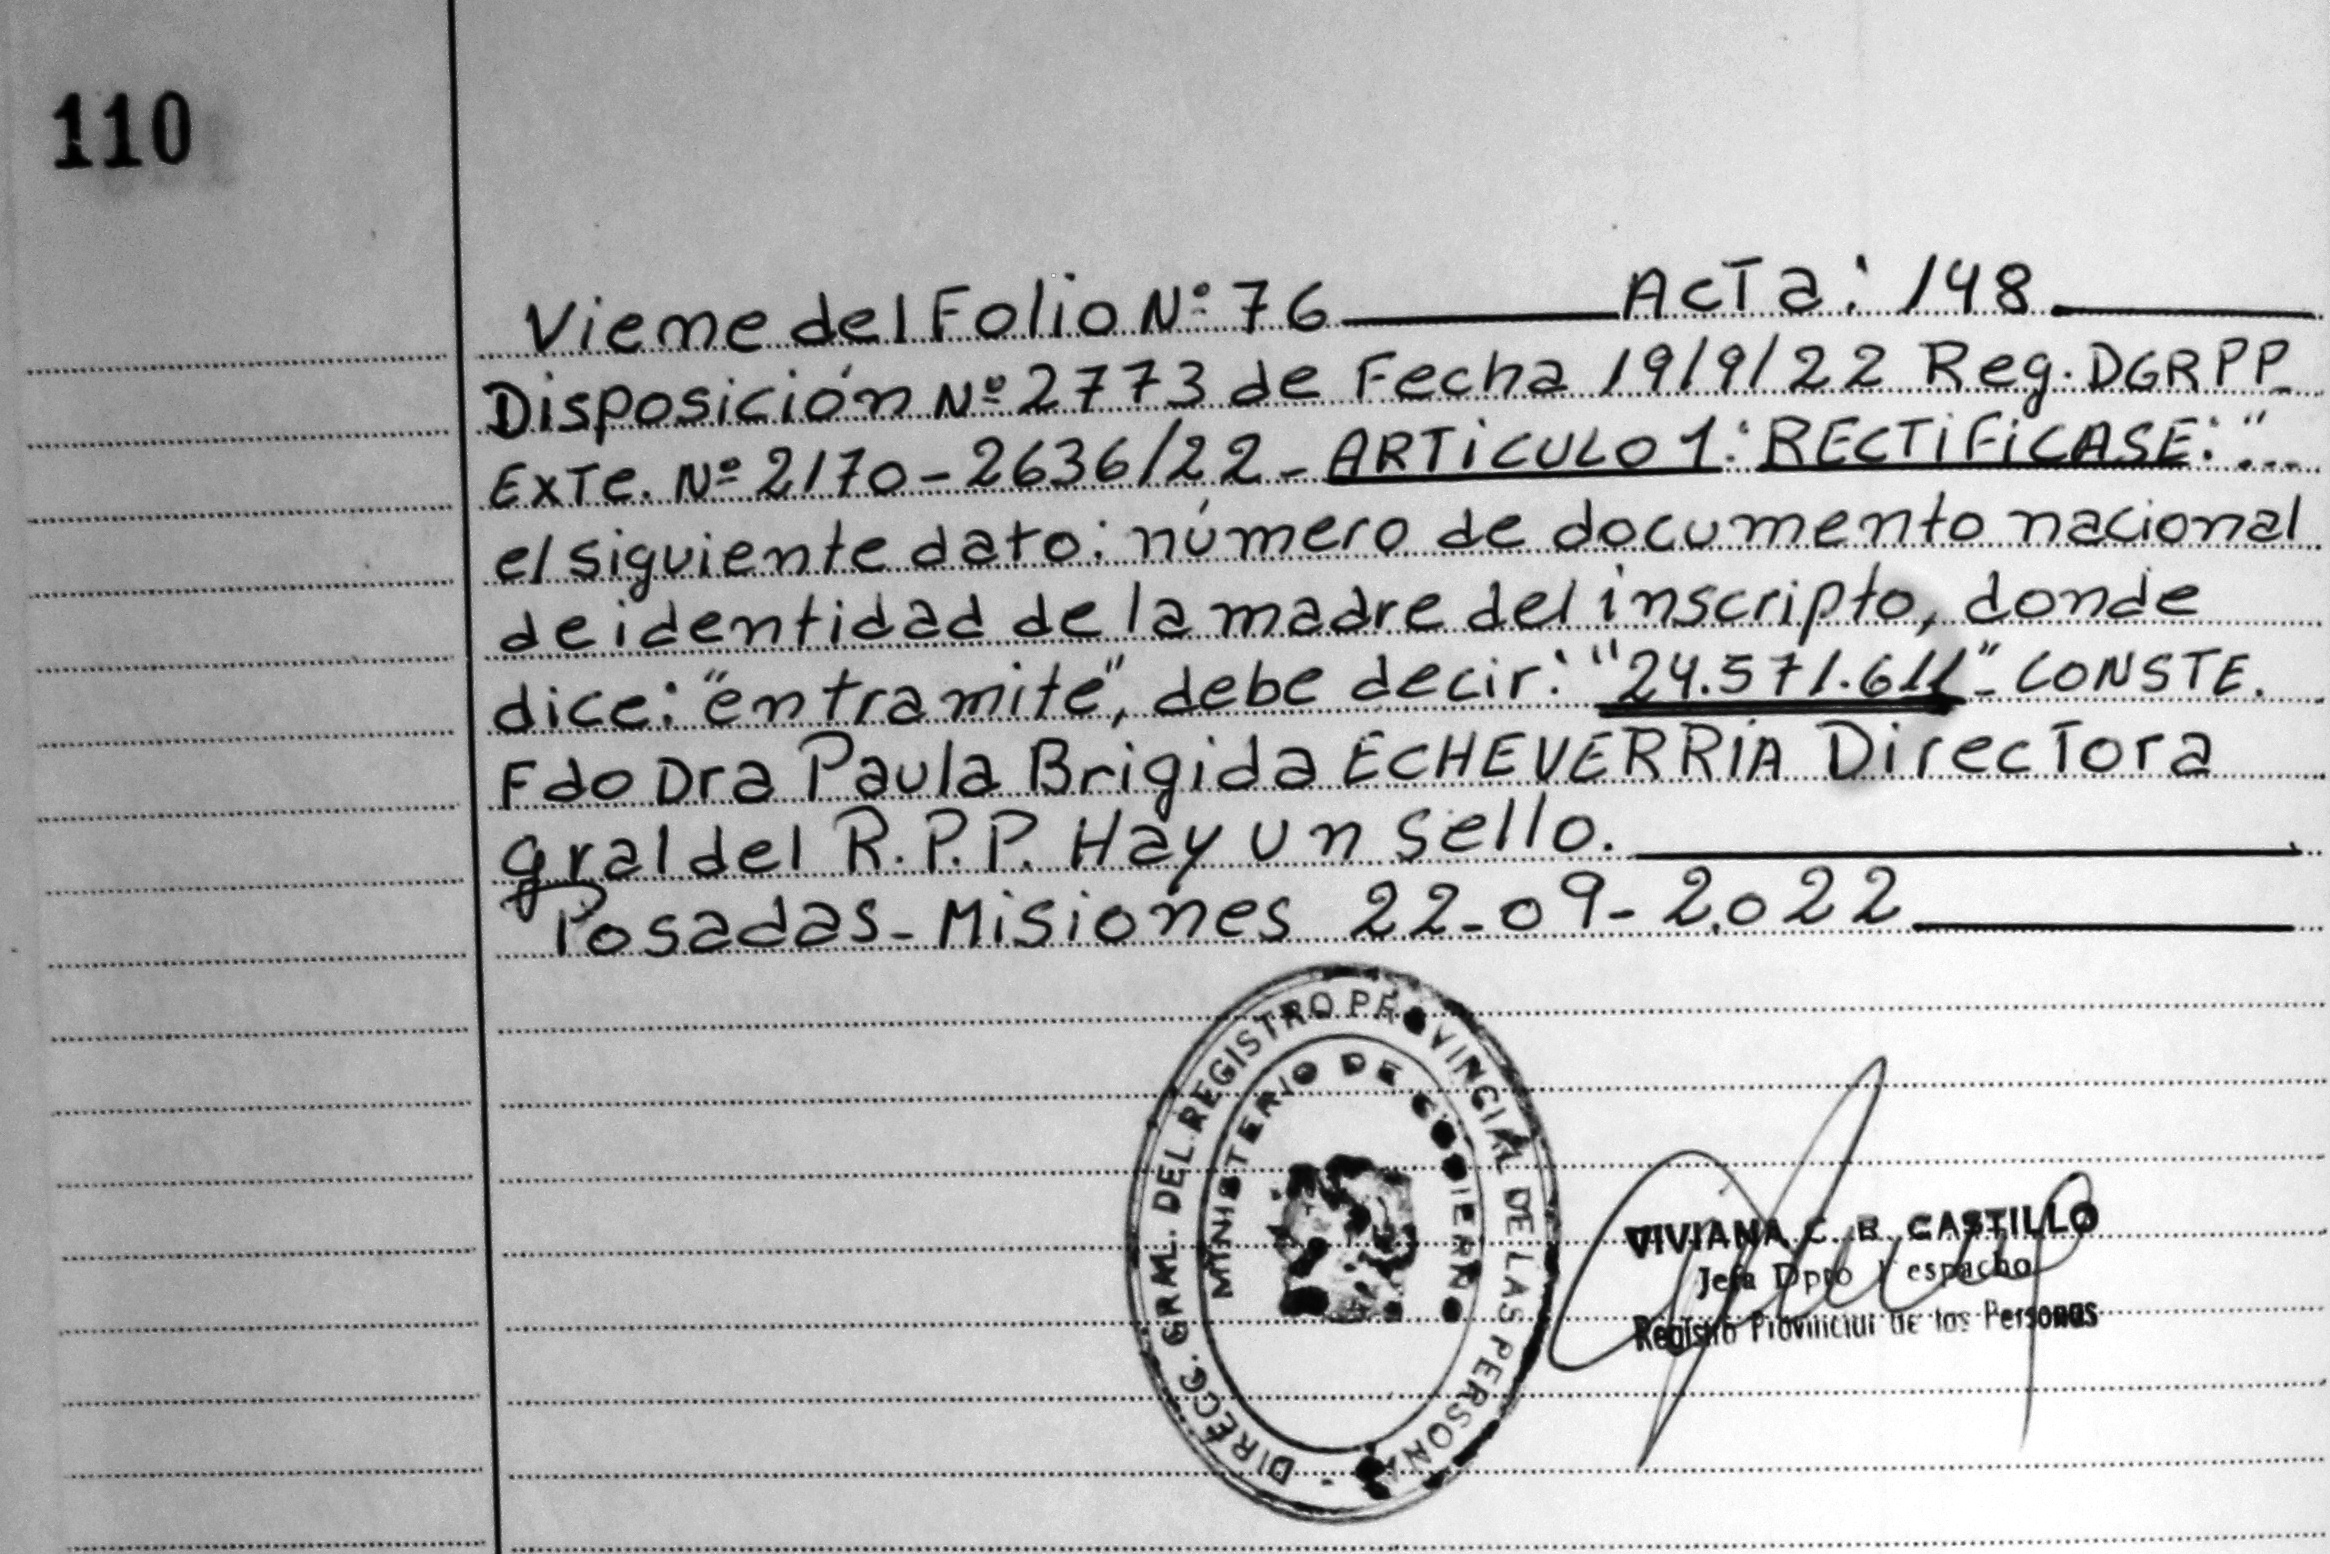 110
Viene del Folio Nº 76 Acta: 148
Disposición Nº 2773 de Fecha 19/9/22 Reg. DGRPP
Exte. Nº 2170-2636/22 - ARTICULO 1: RECTIFICASE: "...
el siguiente dato: número de documento nacional
de identidad de la madre del inscripto, donde
dice: "en tramite", debe decir: "24.571.611" - CONSTE.
Fdo Dra Paula Brigida ECHEVERRIA Directora
gral del R.P.P. Hay un sello.
Posadas - Misiones 22-09-2.022
DIRECC. GRAL. DEL REGISTRO PROVINCIAL DE LAS PERSONAS
MINISTERIO DE GOBIERNO
VIVIANA C. B. CASTILLO
Jefa Dpto Despacho
Registro Provincial de las Personas